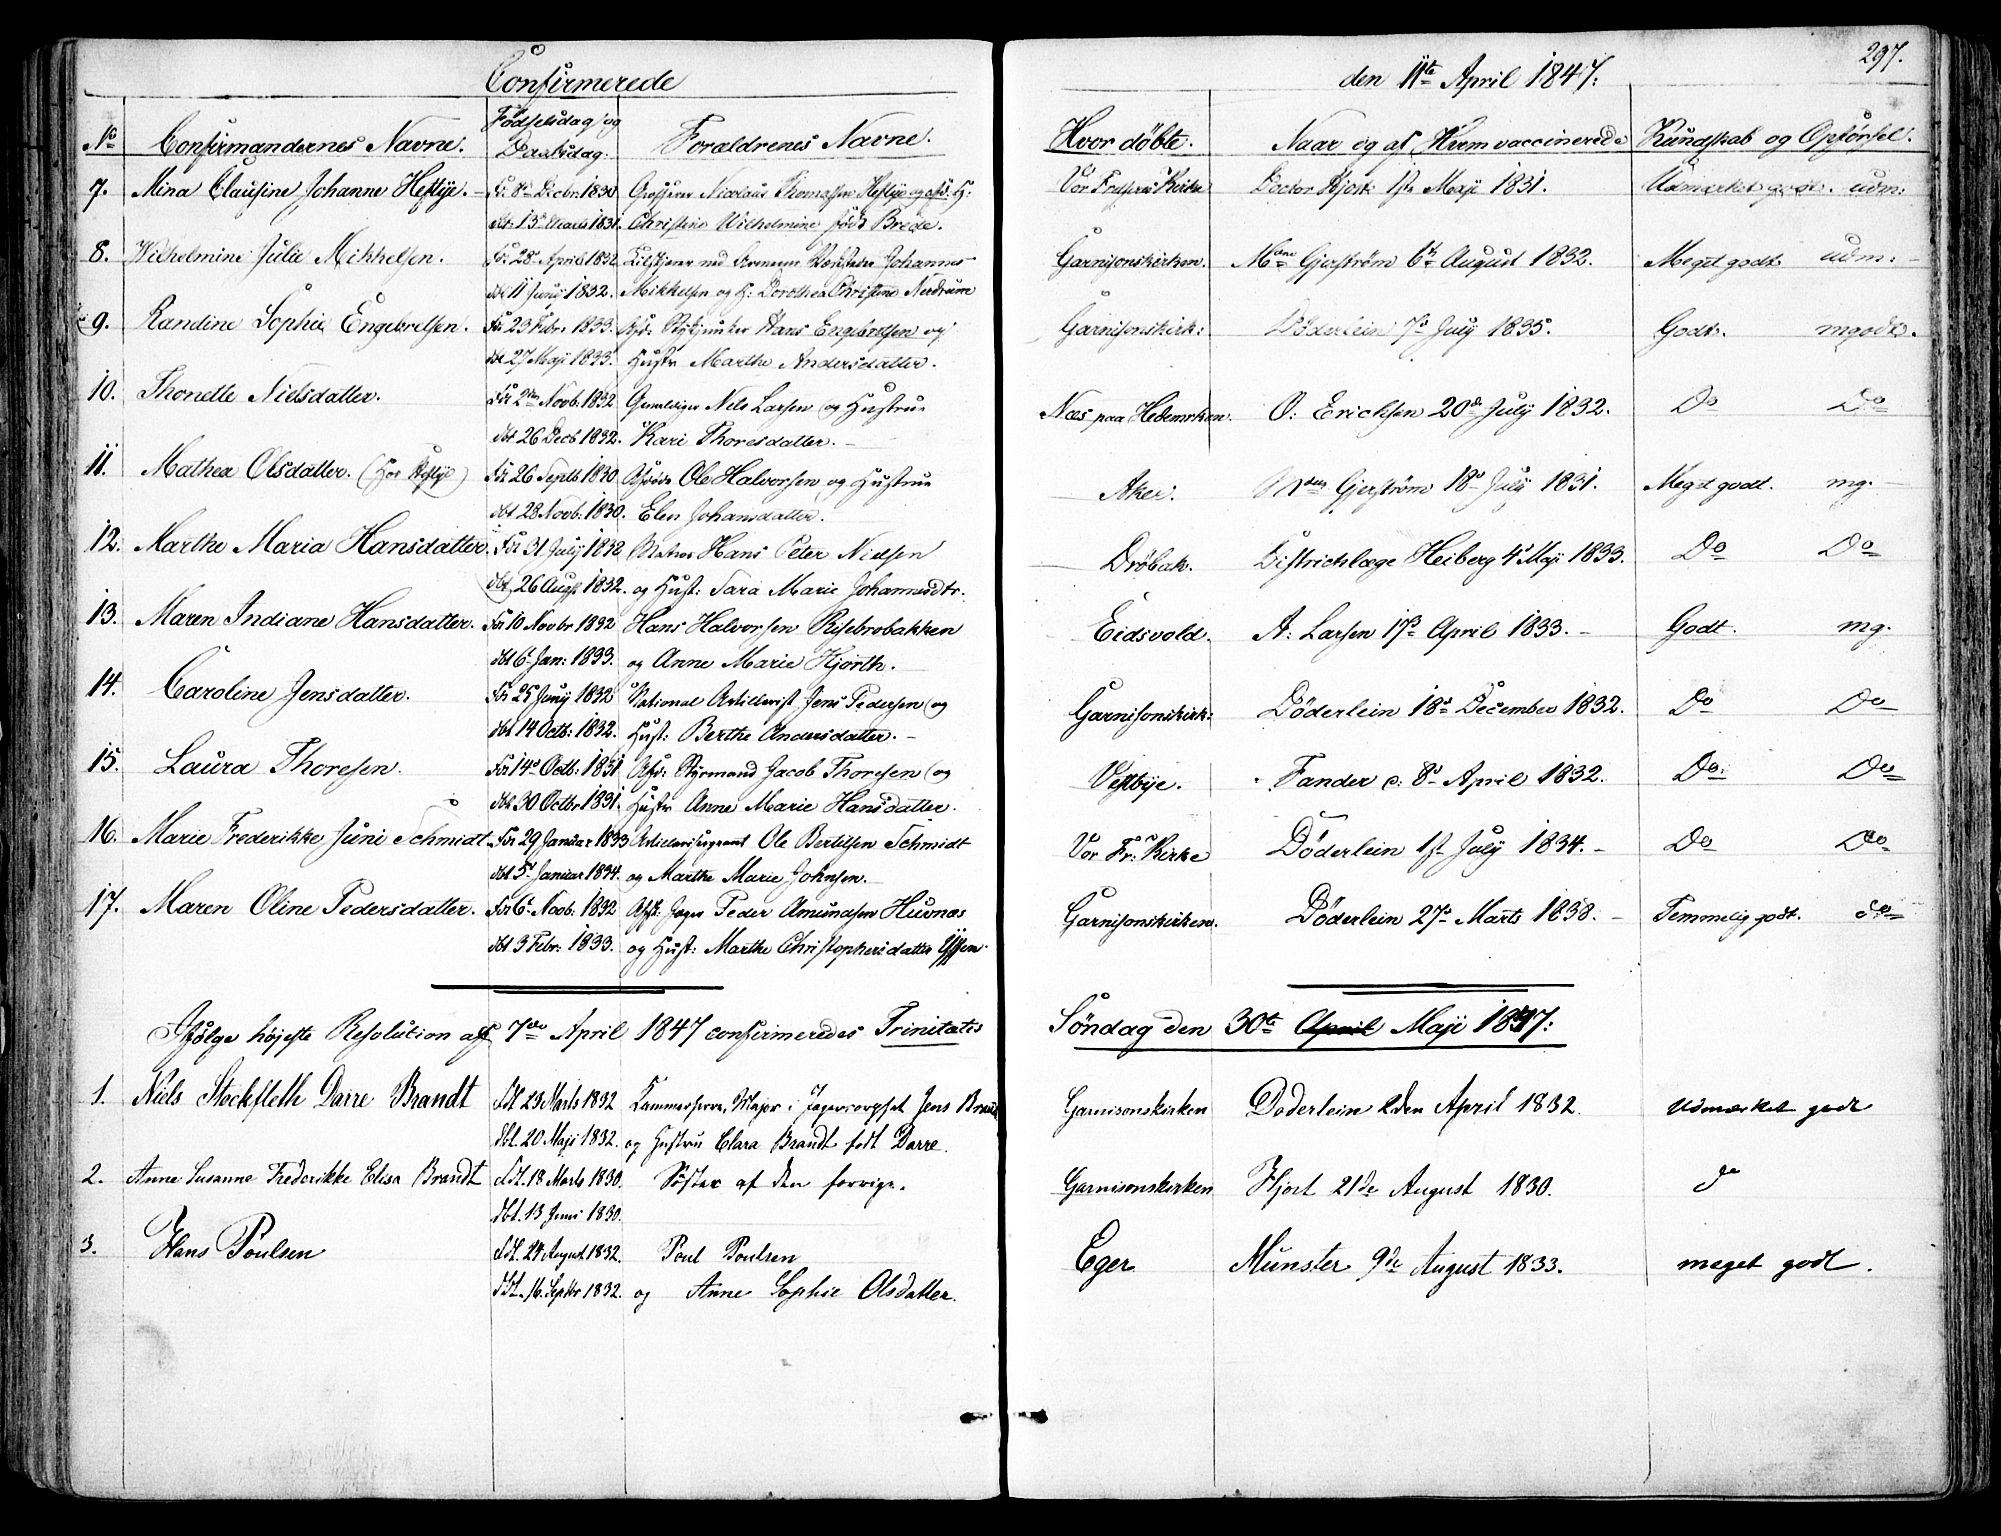 Confirmerede
No Confirmandernes Navne. Fødselsdag og Daabsdag. Forældrenes Navne.
7. Mina Clausine Johanne Heftye. Fr. 8de Decbr. 1830 Grosserer Nicolaus Thomassen Heftye og H:
dbt. 13de Marts 1831. Christine Wilhelmine født Brede.
8. Wilhelmine Julie Mikkelsen. Fr. 28de April 1832 ved Johannes
dbt 11 Juny 1832. Mikkelsen og H: Dorothea Christine Nerdrum
9. Randine Sophie Engebretsen. Fdt 23 Febr. 1833. Hans Engebretsen og
dbt 27 Maji 1833. Hustr Marthe Andersdatter.
10. Thonette Nielsdatter. Fdt 2den Novb. 1832 Nels Larsen og Hustrue
dbt 26 Decb 1832. Kari Thoresdatter.
11. Mathea Olsdatter. (hos Heftye) Fdt 26 Septb 1830 Ole Halvorsen og Hustrue
dbt 28 Novb: 1830. Elen Johansdatter.
12. Marthe Maria Hansdatter. Fdt 31 July 1832 Matros Hans Peter Nielsen
dbt 26 Augst 1832. og Hust: Sara Marie Johannesdtr.
13. Maren Indiane Hansdatter. Fdt 10 Novbr 1832 Hans Halvorsen Risebrobakken
dbt 6. Jan: 1833. og Anne Marie Hjorth.
14. Caroline Jensdatter. Fdt 25 Juny 1832 National Artillerist Jens Pedersen og
dbt 14 Octb: 1832. Hust: Berthe Andersdatter.
15. Laura Thoresen. Fdt 14de Octb: 1831 Afd: Styrmand Jacob Thoresen og
dbt 30 Octbr 1831. Hustr Anne Marie Hansdatter.
16. Marie Frederikke Juni Schmidt. Fdt 29 Januar 1833 Artillerisergeant Ole Bertelsen Schmidt
dbt 5. Januar 1834. og Marthe Marie Johnsen.
17. Maren Oline Pedersdatter. Fdt 6. Novb: 1832 Afsk: Jæger Peder Amundsen Husnæs
dbt 3 Febr: 1833. og Hust: Marthe Christophersdatter
Ifølge højeste Resolution af 7de April 1847 confirmeredes Trinitatis
1. Niels Stockfleth Darre Brandt fdt 23 Marts 1832 Kammerherre, Major i Jægercorpset Jens Brandt
dbt. 20 Maji 1832. og Hustru Clara Brandt født Darre.
2. Anne Susanne Frederikke Elisa Brandt fdt. 18 Marts 1830. Søster af den forrige.
dbt. 13 Juni 1830.
3. Hans Poulsen fdt. 24 August 1832. Poul Poulsen
dbt. 16. Septbr 1832. og Anne Sophie Olsdatter.
den 11te April 1847: 297.
Hvor døbte. Naar og af Hvem vaccinerede Kundskab og Opførsel.
Vor Frelsers Kirke Doctor Hjort 1ste Maji 1831. Udmærket godt. udm:
Garnisonskirken. Mdme Gjerström 6te August 1832. Meget godt. udm:
Garnisonskirk: Döderlein 7de July 1835. Godt. mgodt.
Næs paa Hedemarken. O: Erichsen 20de July 1832. Do Do
Aker. Mdme Gjerström 18de July 1831. Meget godt. mg.
Drøbak. Districhlæge Heiberg 4de Maji 1833. Do Do
Eidsvold. A: Larsen 17de April 1833. Godt. mg.
Garnisonskirk: Döderlein 18de December 1832. Do Do
Vestbye. Fander c: 8de April 1832. Do: Do
Vor Fr: Kirke Döderlein 1ste July 1834. Do Do
Garnisonskirken. Döderlein 27de Marts 1838. Temmelig godt. do
Söndag den 30te April Maji 1847:
Garnisonskirken Doderlein 2den April 1832. Udmærket godt
Garnisonskirken Hjort 21de August 1830. do
Eger Munster 9de August 1833. meget godt.